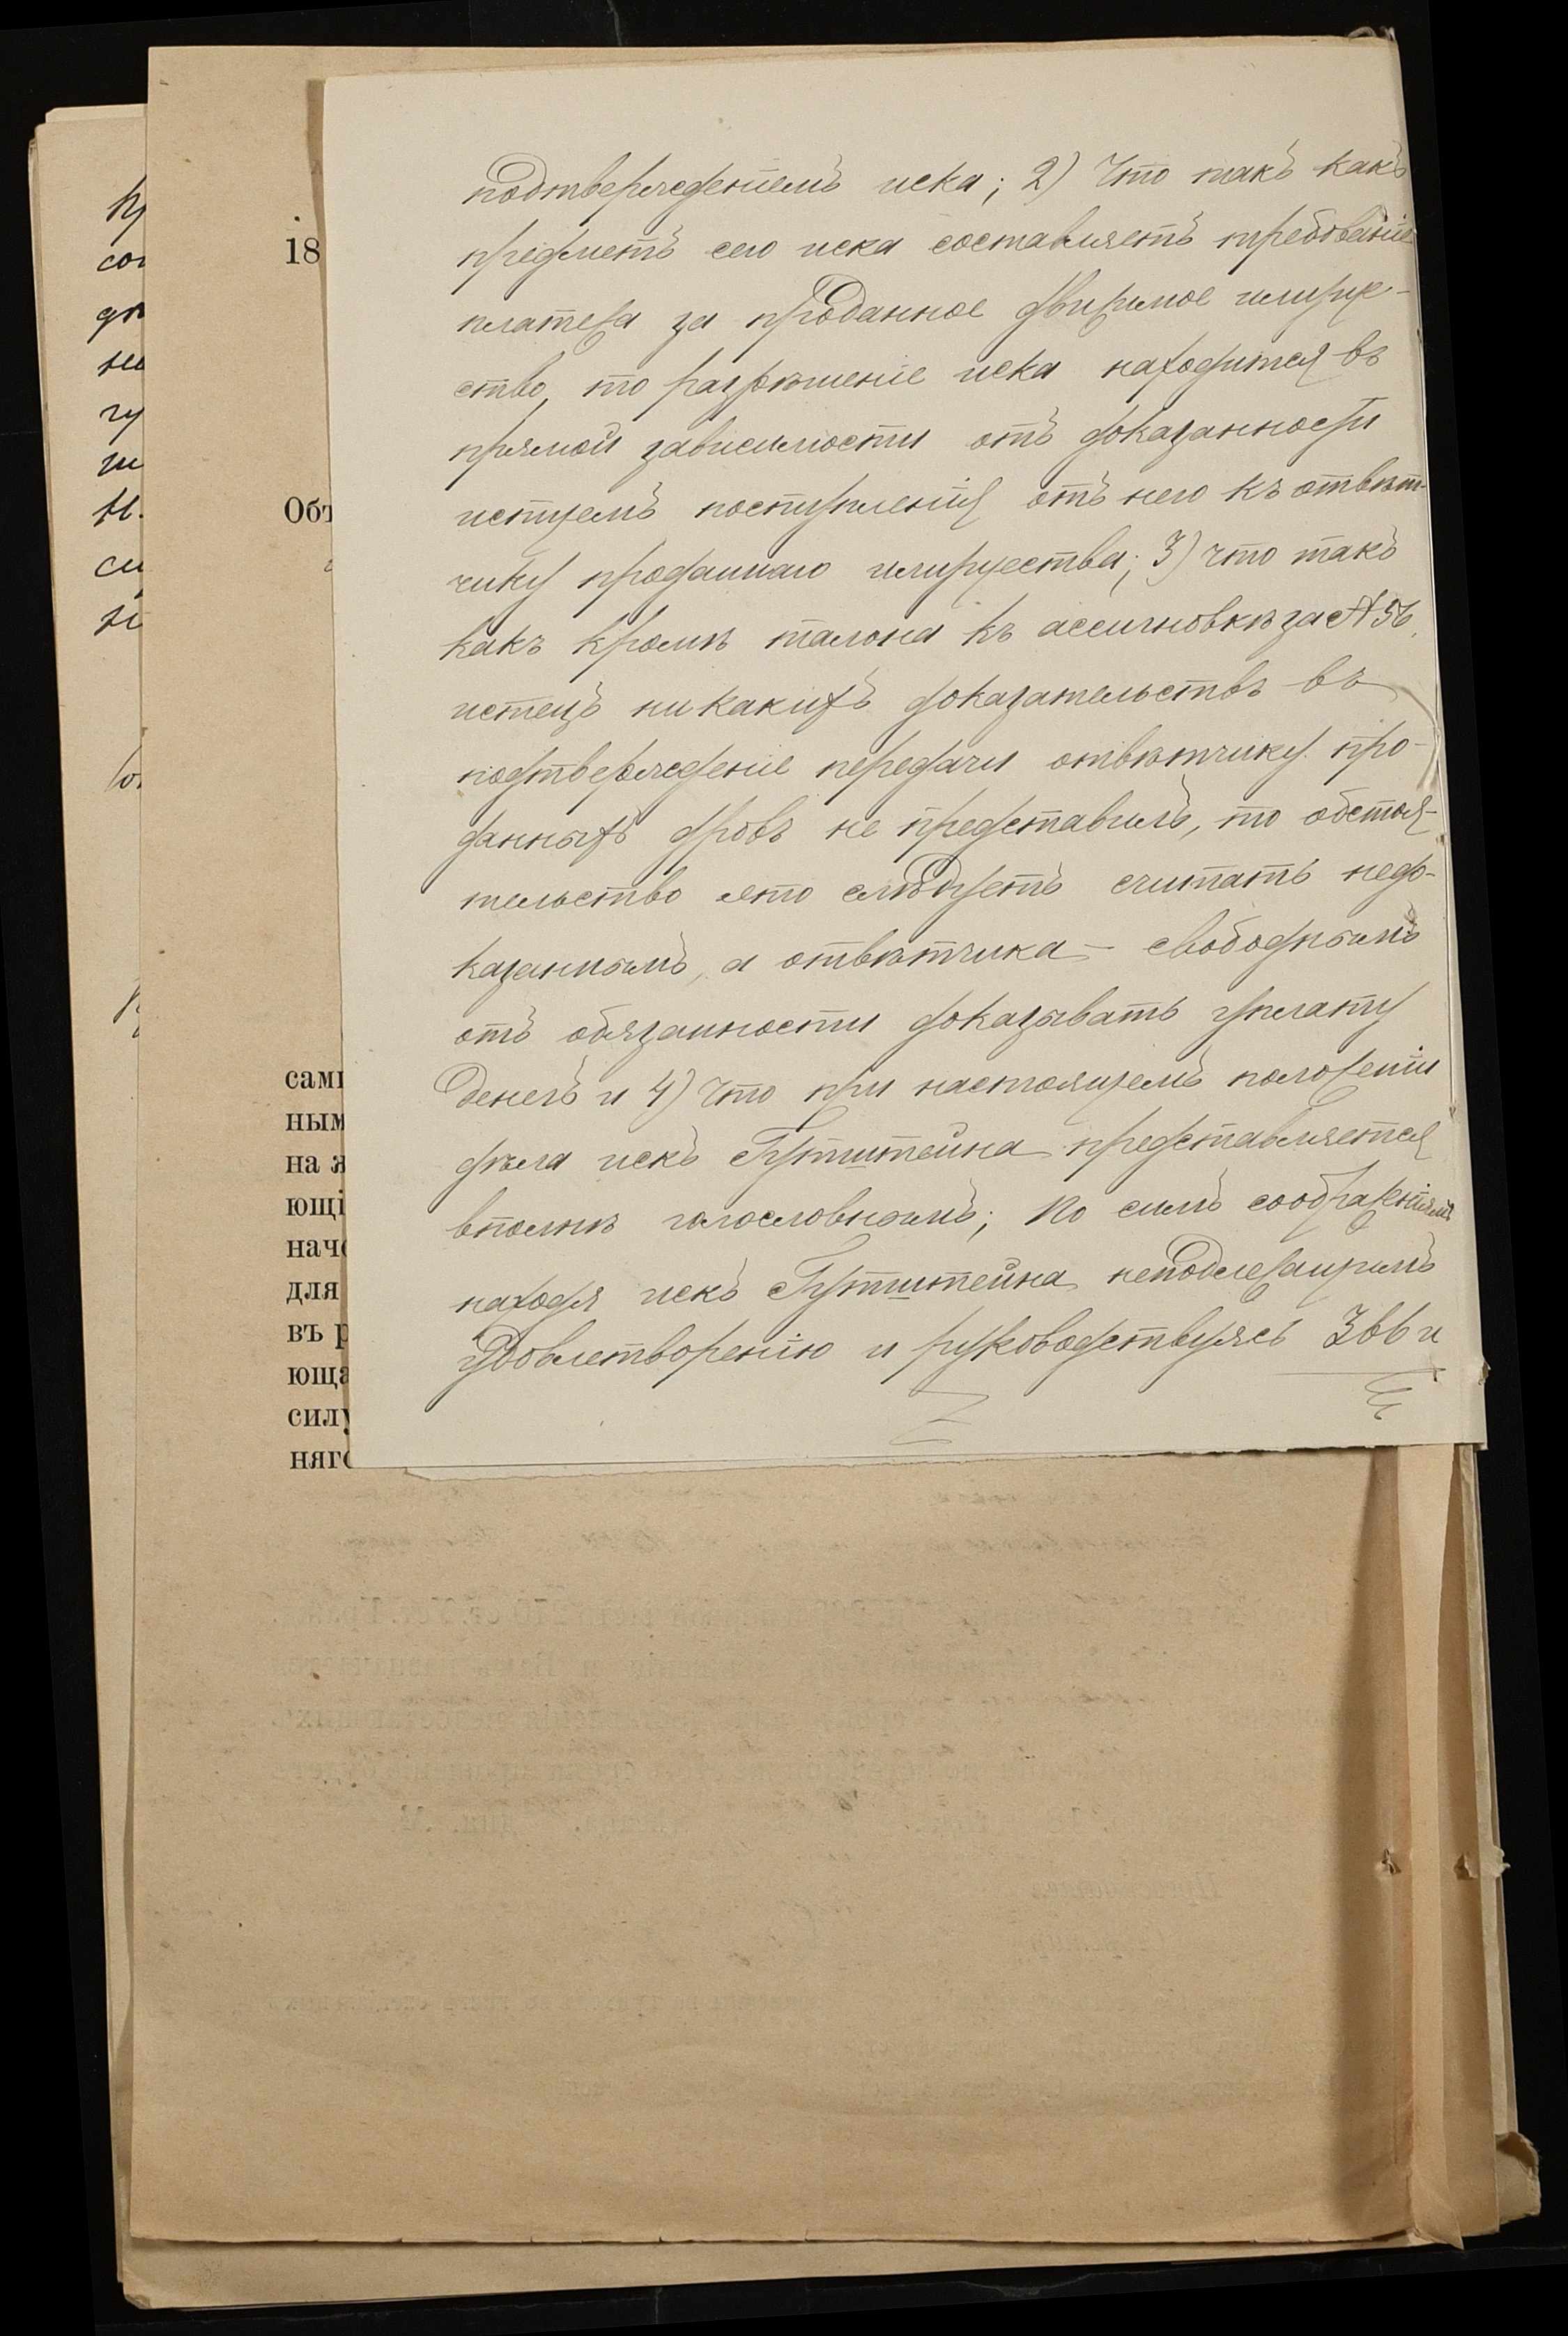 подтвержденіемъ иска; 2) Что такъ какъ
предметъ сего иска составляетъ требованіе
платежа за проданное движимое имуще-
ство, то разрѣшеніе иска находится въ
прямой зависимости отъ доказанности
истцемъ поступленія отъ него къ отвѣт-
чику проданнаго имущества; 3) что такъ
какъ кромѣ талона къ ассигновкѣ за № 56,
истецъ никакихъ доказательствъ въ
подтвержденіе передачи отвѣтчику про-
данныхъ дровъ не представилъ, то обстоя-
тельство это слѣдуетъ считать недо-
казаннымъ, а отвѣтчика – свободнымъ
отъ обязанности доказывать уплату
денегъ и 4) Что при настоящемъ положеніи
дѣла искъ Гутштейна представляется
вполнѣ голословнымъ; По симъ соображеніямъ
находя искъ Гутштейна неподлежащимъ
удовлетворенію и руководствуясь 366 и
18
Объ
сами
ным
на
ющі
наче
для
въ р
юща
силу
няго